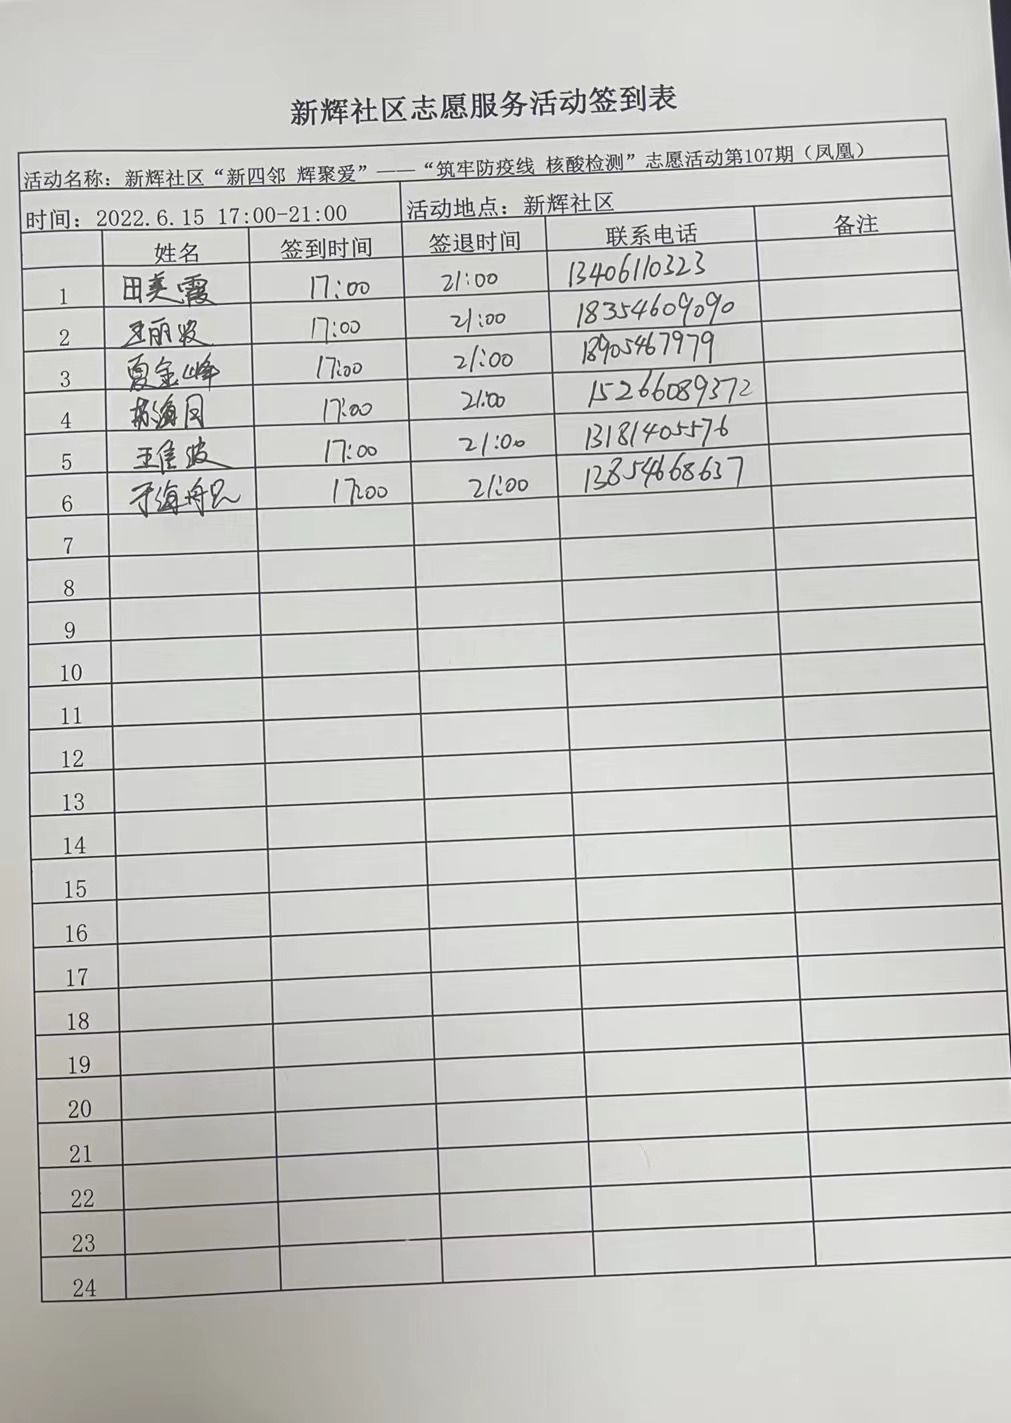 新辉社区志愿服务活动签到表
活动名称：新辉社区“新四邻 辉聚爱”——“筑牢防疫线 核酸检测”志愿活动第107期（凤凰）
时间：2022.6.15 17:00-21:00 活动地点：新辉社区
姓名 签到时间 签退时间 联系电话 备注
1 田美霞 17:00 21:00 13406110323
2 王丽波 17:00 21:00 18354609090
3 夏金峰 17:00 21:00 18905467979
4 17:00 21:00 15266089372
5 王佳波 17:00 21:00 13181405576
6 17:00 21:00 13854668637
7
8
9
10
11
12
13
14
15
16
17
18
19
20
21
22
23
24